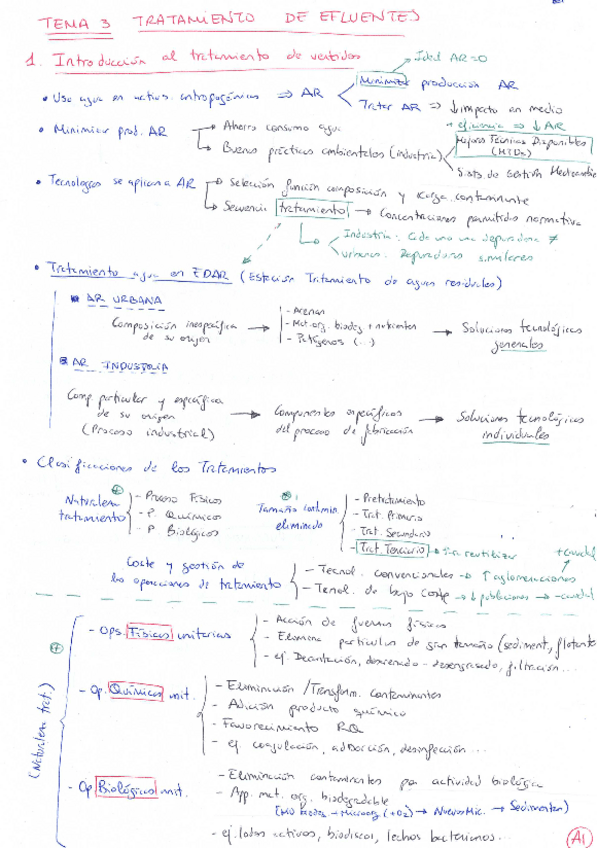 TEMA 3 TRATAMIENTO DE EFLUENTES
1. Introducción al tratamiento de vertidos
Ideal AR=0
• Uso agua en activs. antropogénicas ⇒ AR
Minimizar producción AR
Tratar AR ⇒ ↓impacto en medio
• Minimizar prod. AR
→ Ahorro consumo agua
+ eficiencia ⇒ ↓ AR
↳ Buenas prácticas ambientales (industria)
Mejores Técnicas Disponibles
(MTDs)
Sists. de Gestión
• Tecnologías se aplican a AR
→ Selección función composición y carga contaminante
↳ Secuencia tratamiento → Concentraciones permitidas normativa
Industria: Cada una una depuradora ≠
Urbanas: Depuradoras similares
• Tratamiento agua en EDAR (Estación Tratamiento de aguas residuales)
AR URBANA
Composición inespecífica
de su origen
- Arenas
- Mat. org. biodeg + nutrientes
- Patógenos (...)
Soluciones tecnológicas
generales
AR INDUSTRIA
Comp. particular y específica
de su origen
(Proceso industrial)
Componentes específicos
del proceso de fabricación
Soluciones tecnológicas
individuales
• Clasificaciones de los Tratamientos
Naturaleza
tratamiento
- Proceso Físicos
- P. Químicos
- P Biológicos
Tamaño contamin.
eliminado
- Pretratamiento
- Trat. Primario
- Trat. Secundario
- Trat. Terciario → reutilizar
Coste y gestión de
las operaciones de tratamiento
- Tecnol. convencionales → ↑ aglomeraciones
+ caudal
- Tecnol. de bajo coste → ↓ poblaciones → - caudal
(Naturaleza trat.)
- Ops. Físicas unitarias
- Acción de fuerzas físicas
- Elimina partículas de gran tamaño (sediment, flotante
- ej. Decantación, desarenado - desengrasado, filtración...
- Op. Químicas unit.
- Eliminación / Transform. contaminantes
- Adición producto químico
- Favorecimiento RQ
- ej. coagulación, adsorción, desinfección...
- Op Biológicas unit.
- Eliminación contaminantes por actividad biológica
- App. mat. org. biodegradable
(MO biodeg + Microorg (+O2) → Nuevos Mic. → Sedimentan)
- ej. lodos activos, biodiscos, lechos bacterianos...
A1